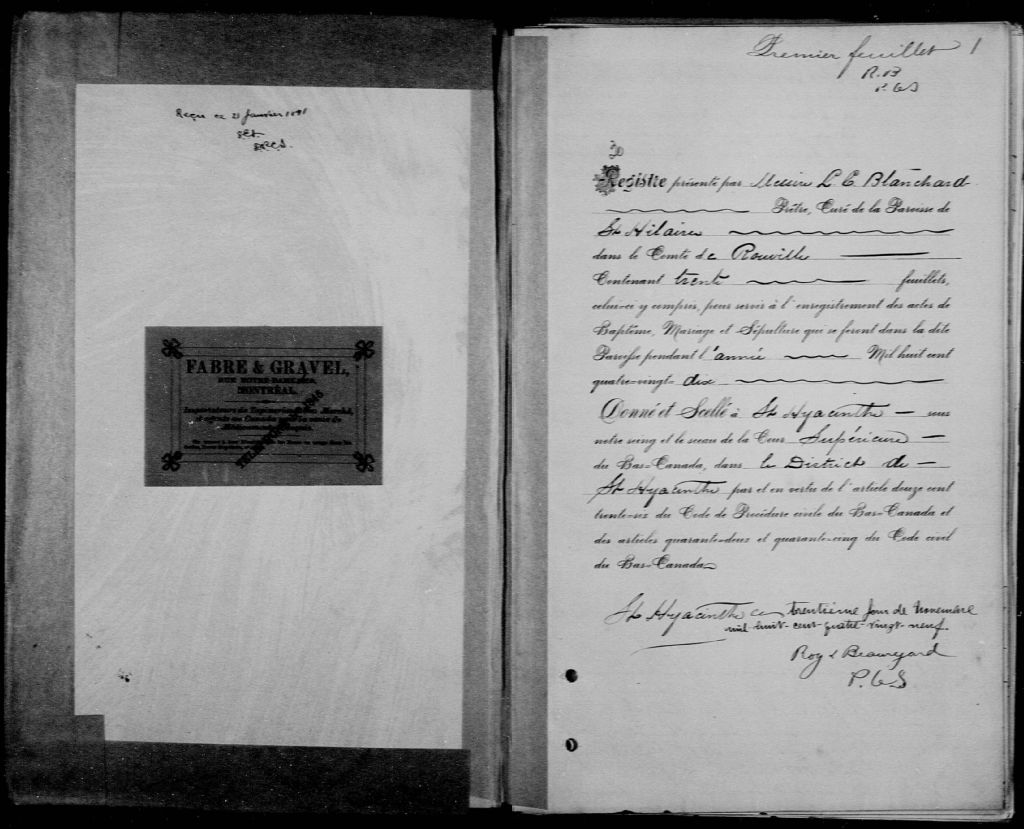 Reçu ce 21 Janvier 1891
FABRE & GRAVEL,
RUE NOTRE-DAME,
MONTRÉAL.
Importateurs de Tapisseries
TELEPHONE
Premier feuillet 1
R. B
P. C S
30
Registre présenté par Messire L. C. Blanchard
Prêtre, Curé de la Paroisse de
St Hilaire
dans le Comté de Rouville
Contenant trente feuillets,
celui-ci y compris, pour servir à l'enregistrement des actes de
Baptême, Mariage et Sépulture qui se feront dans la dite
Paroisse pendant l'année Mil huit cent
quatre-vingt- dix
Donné et Scellé à St Hyacinthe — sous
notre seing et le sceau de la Cour Supérieure —
du Bas-Canada, dans le District de —
St Hyacinthe par et en vertu de l'article douze cent
trente-six du Code de Procédure civile du Bas-Canada et
des articles quarante-deux et quarante-cinq du Code civil
du Bas-Canada
St Hyacinthe ce trentième jour de novembre
mil-huit-cent-quatre-vingt-neuf
Roy & Beauregard
P. C S